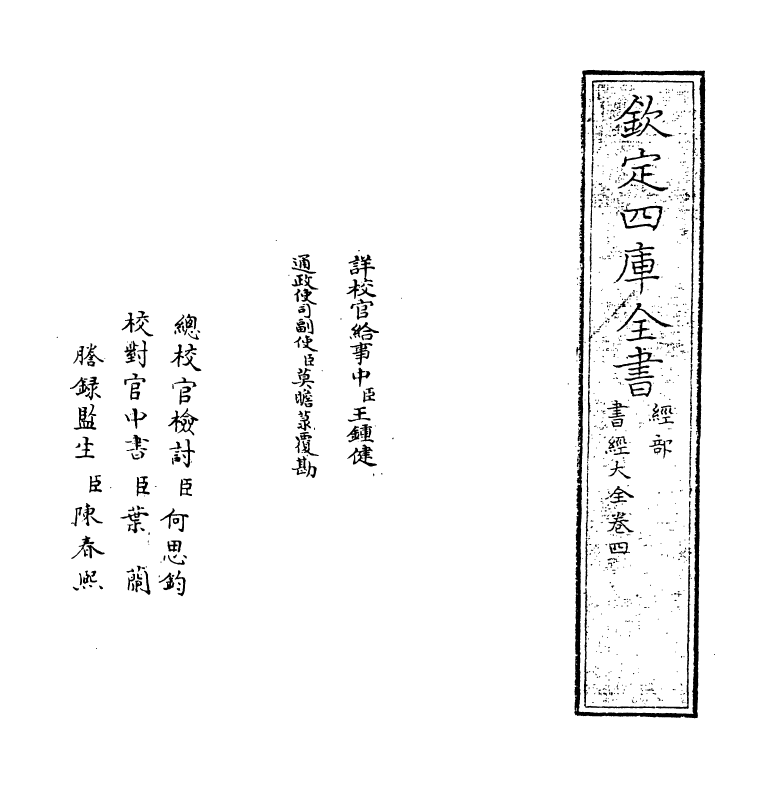 欽定四庫全書
經部
書經大全卷四
詳校官給事中臣王鍾健
通政使司副使臣莫瞻菉覆勘
總校官檢討臣何思鈞
校對官中書臣葉蘭
謄錄監生臣陳春熙